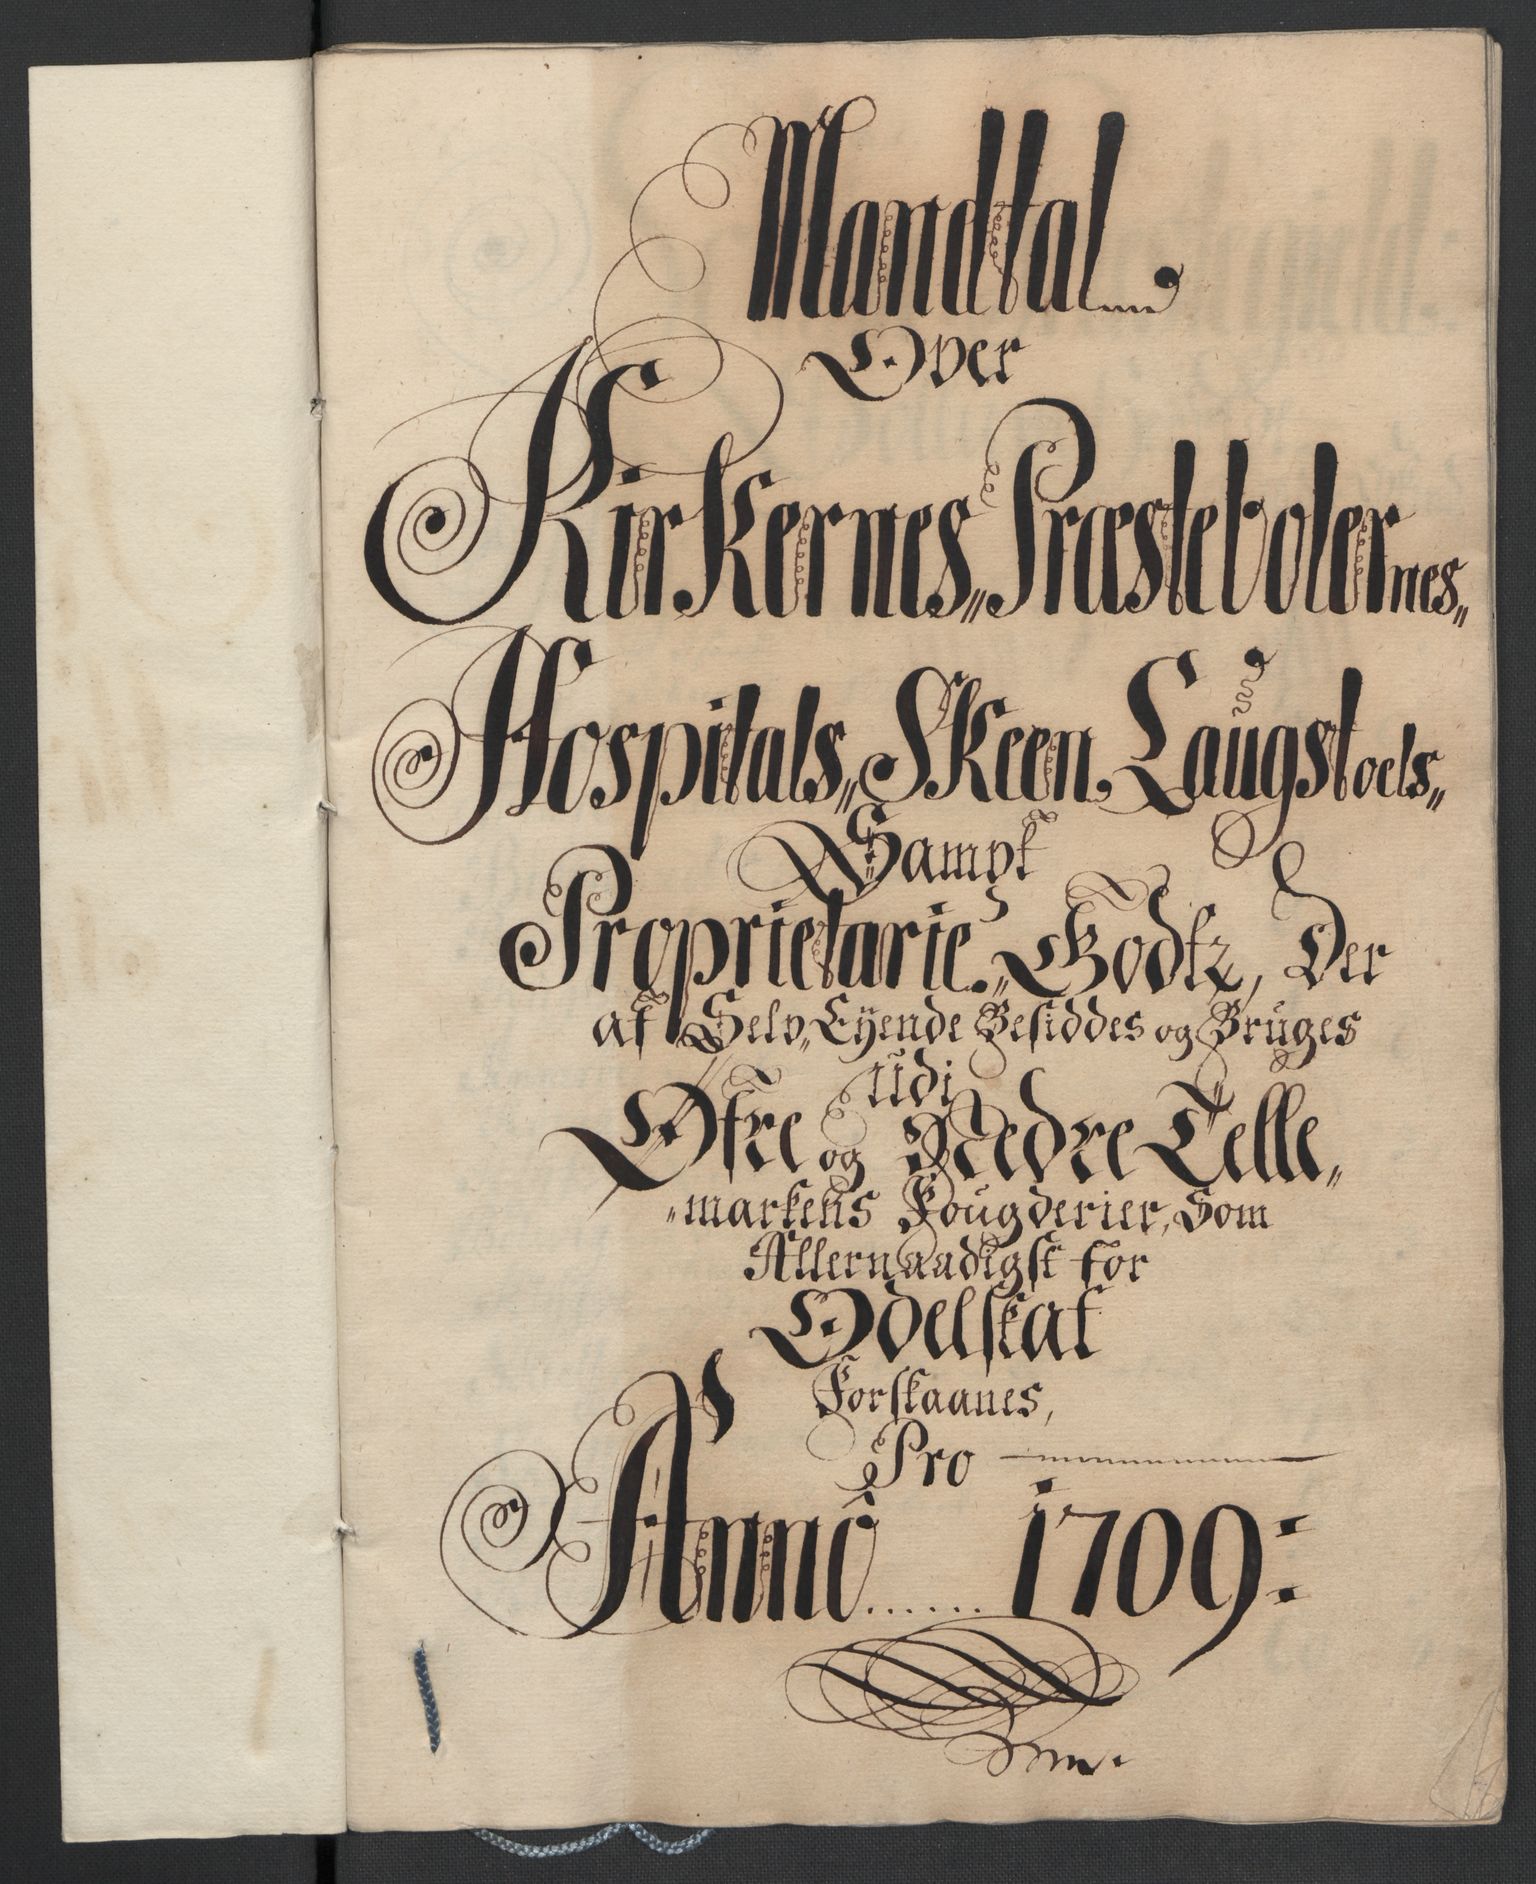 Mandtal
Over
Kirkernes„ Præstebolernes„
Hospitals„ Skeen Laugstoels„
Sampt
Proprietarie„ Godtz, Der
af Selv„ Eÿende Besiddes og Bruges
udi
Øfre og Nedre Telle„
„markens Fougderier, Som
Allernaadigst for
Odelskat
Forskaanes,
Pro
Anno ...... 1709: